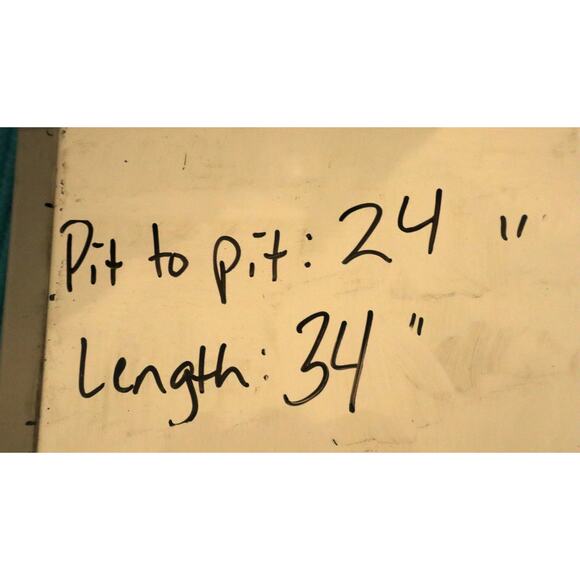 Pit to pit: 24 "
Length: 34"